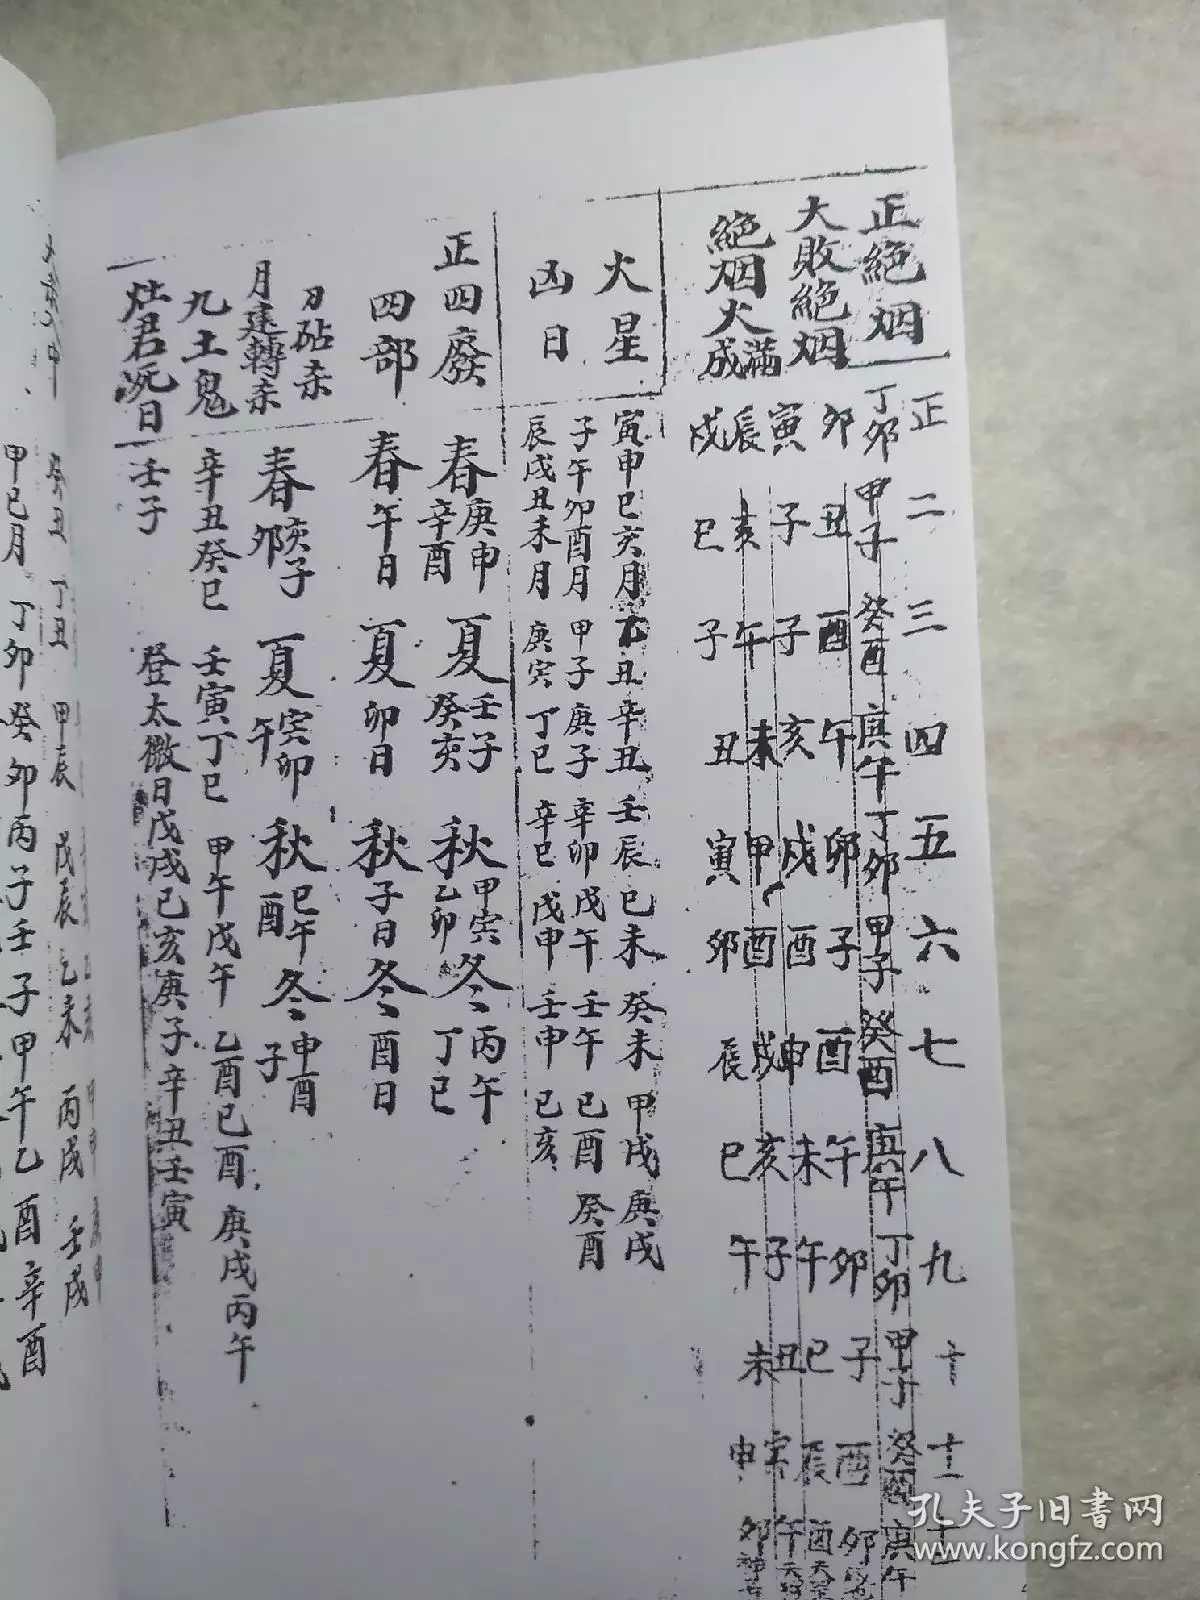 正 二 三 四 五 六 七 八 九 十 十一 十二
正絕烟 丁卯 甲子 癸酉 庚午 丁卯 甲子 癸酉 庚午 丁卯 甲子 癸酉 庚午
大敗絕烟 卯 丑 酉 午 卯 子 酉 午 卯 子 酉 卯
寅 子 子 亥 戌 酉 申 未 午 巳 辰 酉
絕烟火滿成
辰 亥 午 未 甲 酉 戌 亥 子 丑 寅 午
戌 巳 子 丑 寅 卯 辰 巳 午 未 申 卯
火星 寅申巳亥月 乙丑 辛丑 壬辰 巳未 癸未 甲戌 庚戌
子午卯酉月 甲子 庚子 辛卯 戊午 壬午 巳酉 癸酉
凶日 辰戌丑未月 庚寅 丁巳 辛巳 戊申 壬申 巳亥
正四廢 春 庚申 辛酉 夏 壬子 癸亥 秋 甲寅 乙卯 冬 丙午 丁巳
四部 春午日 夏卯日 秋子日 冬酉日
刀砧杀 月建轉杀 春 亥子 卯 夏 寅卯 午 秋 巳午 酉 冬 申酉 子
九土鬼 辛丑 癸巳 壬寅 丁巳 甲午 戊午 乙酉 巳酉 庚戌 丙午
灶君死日 壬子 登太微日 戊戌 巳亥 庚子 辛丑 壬寅
癸丑 丁丑 甲辰 戊辰 乙未 丙戌 壬戌
甲巳月 丁卯 癸卯 丙子 壬子 甲午 乙酉 辛酉
孔夫子旧书网
www.kongfz.com